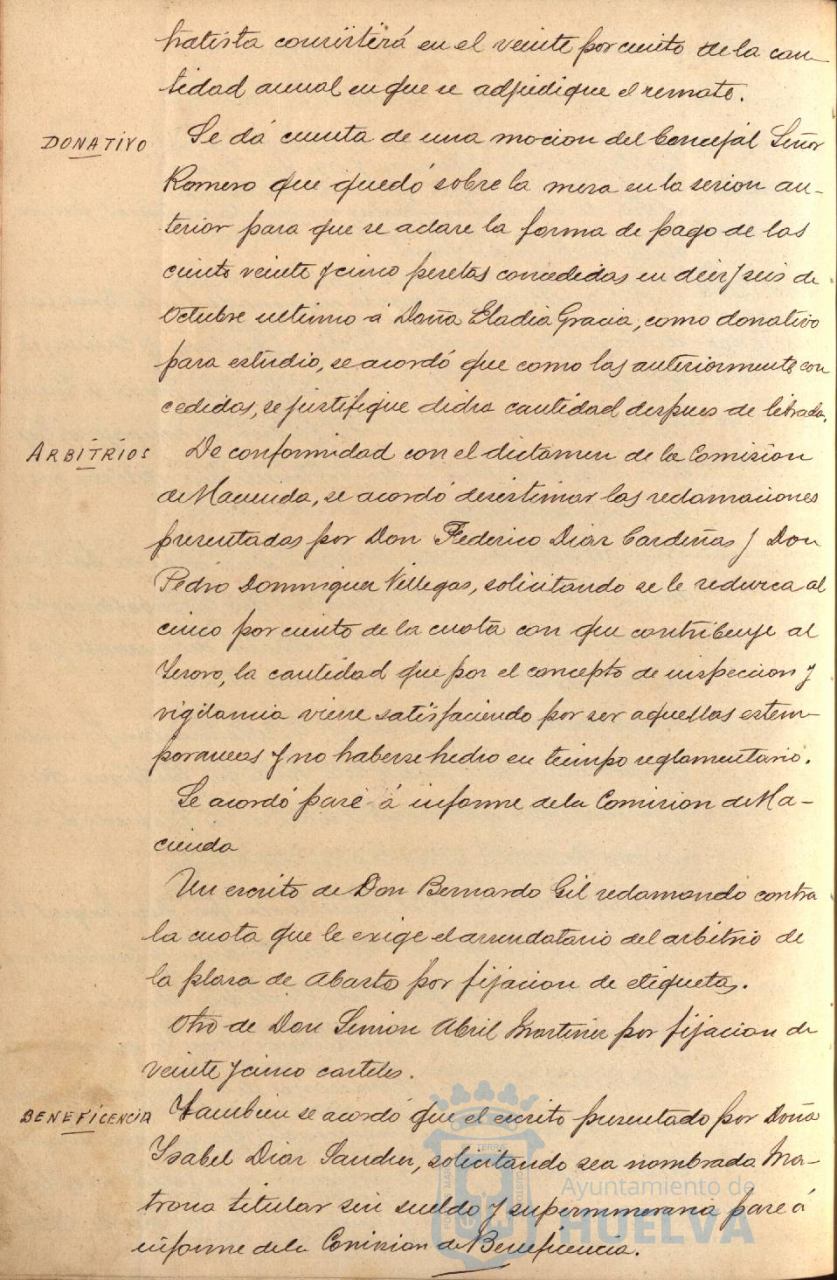 tratista consistirá en el veinte por ciento de la can-
tidad anual en que se adjudique el remate.
DONATIVO Se dá cuenta de una mocion del Concejal Señor
Romero que quedó sobre la mesa en la sesion an-
terior para que se aclare la forma de pago de las
ciento veinte y cinco pesetas concedidas en diez y seis de
Octubre ultimo á Doña Eladia Gracia, como donativo
para estudio, se acordó que como las anteriormente con
cedidas, se justifique dicha cantidad despues de librada.
ARBITRIOS De conformidad con el dictamen de la Comision
de Hacienda, se acordó desestimar las reclamaciones
presentadas por Don Federico Diaz Cardeñas y Don
Pedro Dominguez Villegas, solicitando se le reduzca al
cinco por ciento de la cuota con que contribuye al
Tesoro, la cantidad que por el concepto de inspeccion y
vigilancia viene satisfaciendo por ser aquellas extem-
poraneas y no haberse hecho en tiempo reglamentario.
Se acordó pase á informe de la Comision de Ha-
cienda
Un escrito de Don Bernardo Gil reclamando contra
la cuota que le exige el arrendatario del arbitrio de
la plaza de Abasto por fijacion de etiquetas.
Otro de Don Simon Abril Martinez por fijacion de
veinte y cinco carteles.
BENEFICENCIA Tambien se acordó que el escrito presentado por Doña
Ysabel Diaz Sanchez, solicitando sea nombrada Ma-
trona titular sin sueldo y supernumeraria pase á
informe de la Comision de Beneficencia.
Ayuntamiento de
HUELVA